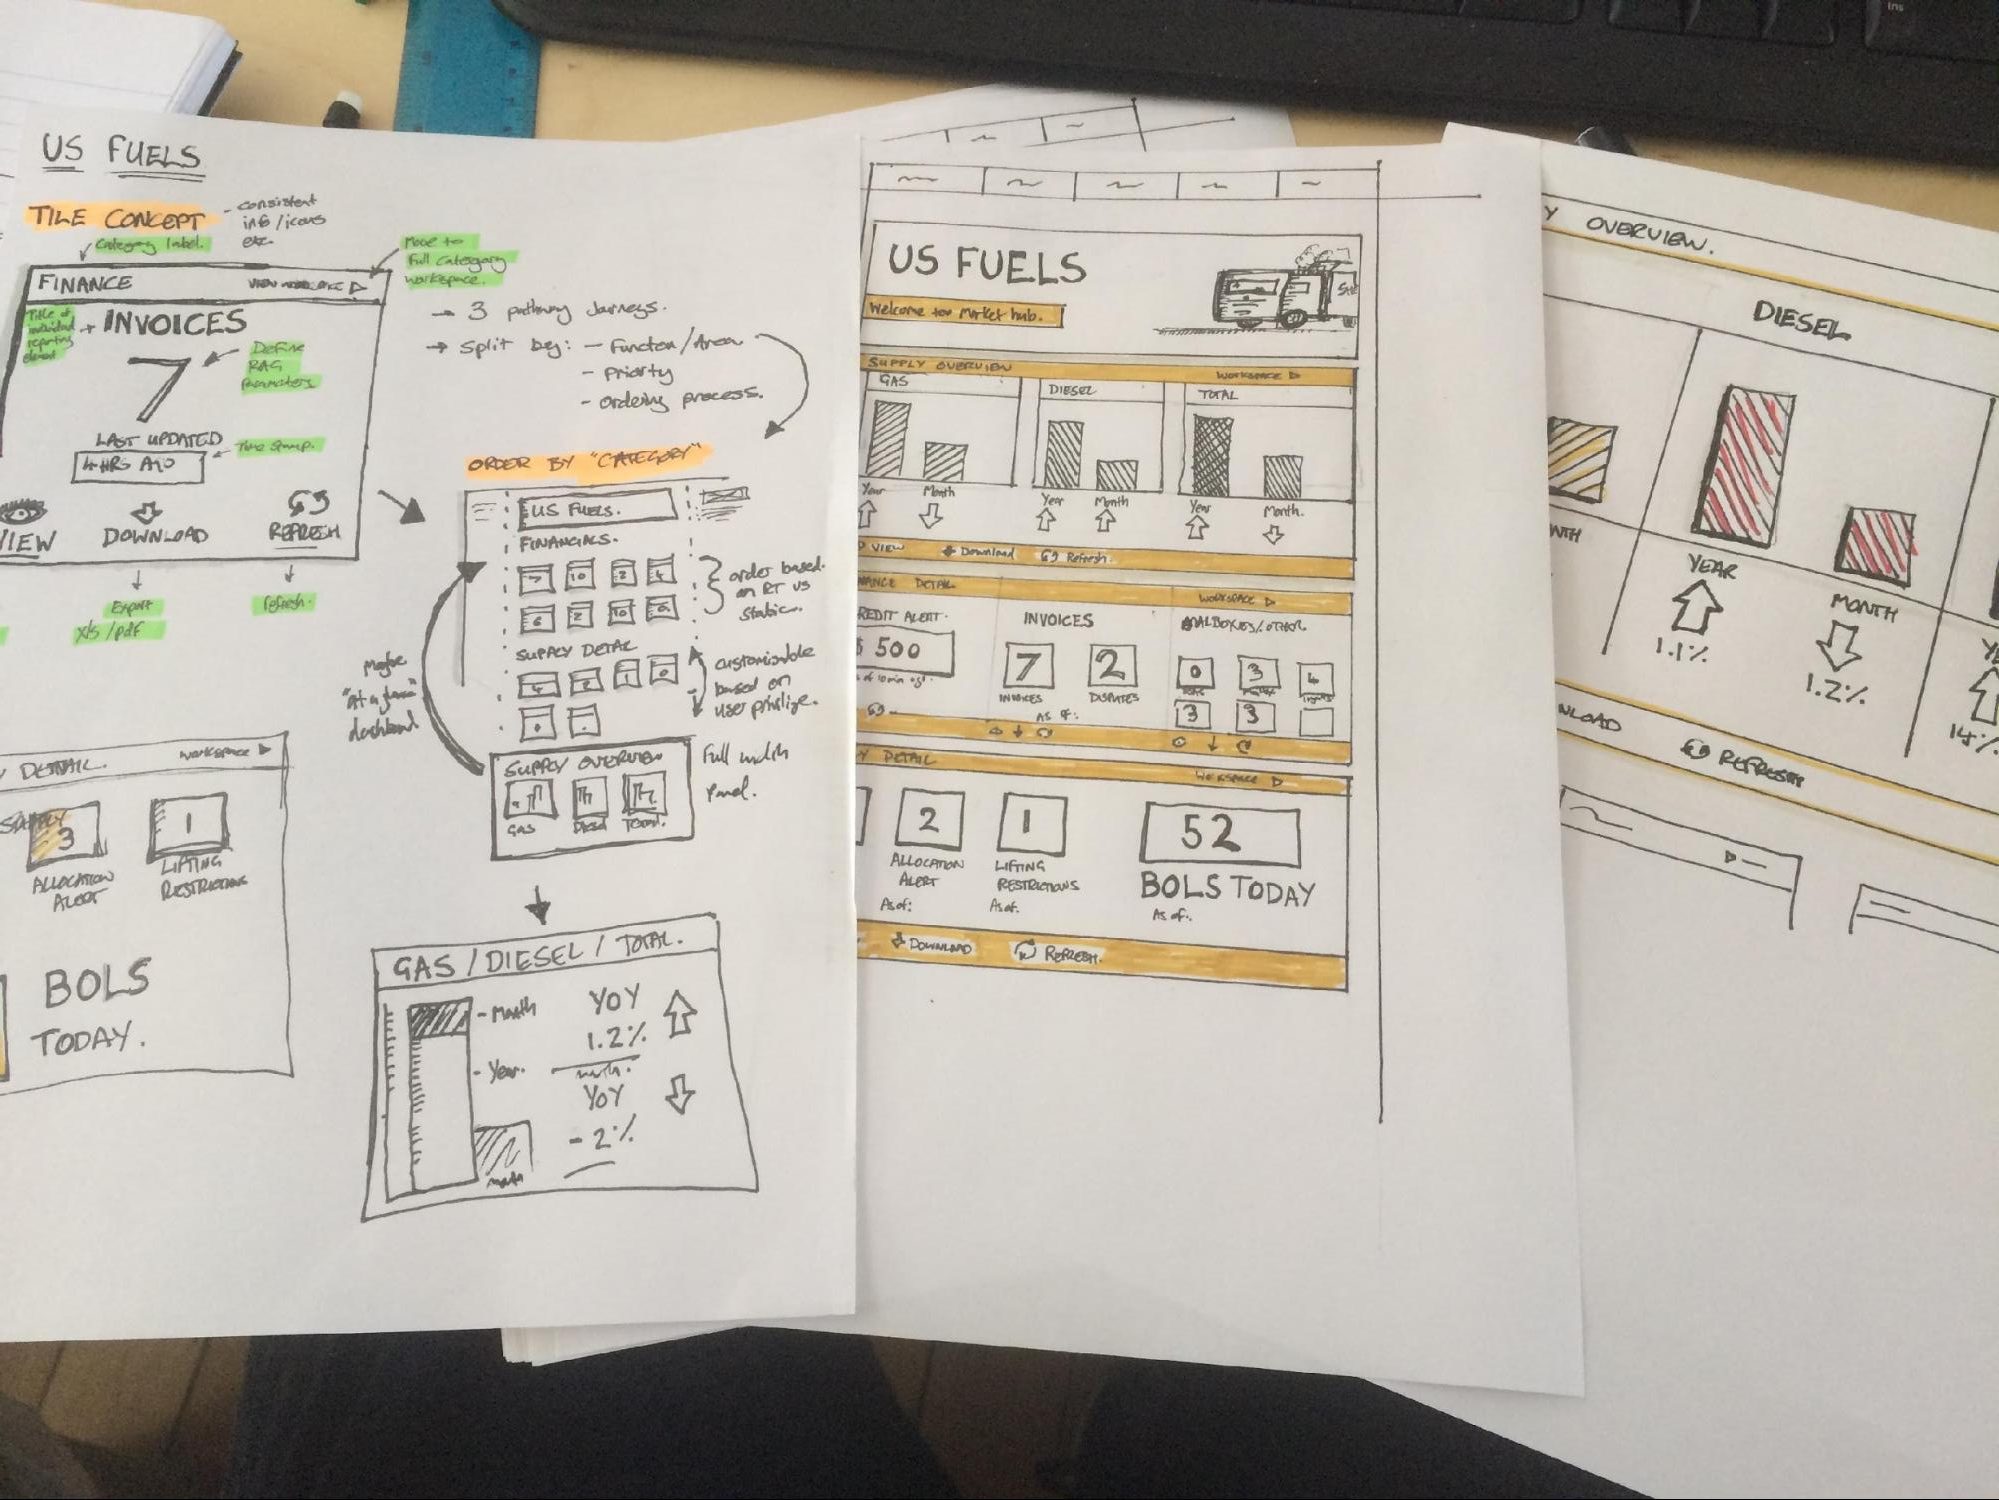 US FUELS
TILE CONCEPT
- consistent
info/icons
etc.
Category label.
Move to
Full Category
workspace.
FINANCE
Title of
individual
reporting
element
INVOICES
7
Define
RAG
parameters
LAST UPDATED
4 HRS AGO
Time stamp.
VIEW
DOWNLOAD
REFRESH
Export
xls/pdf
refresh.
→ 3 pathway Journeys.
→ Split by: - Function/Area
- Priority
- Ordering process.
ORDER BY "CATEGORY"
US FUELS.
FINANCIALS.
7 10 2 4
6 2 10
order based
on RT vs
static.
SUPPLY DETAIL
customisable
based on
user privilige.
Maybe
"At a glance"
dashboard
SUPPLY OVERVIEW
GAS Diesel Total.
Full width
Panel.
Y DETAIL. WORKSPACE
SUPPLY
3
1
ALLOCATION
ALERT
LIFTING
RESTRICTIONS
BOLS
TODAY.
GAS / DIESEL / TOTAL.
- Month
- Year.
YOY
1.2%
YOY
- 2%
US FUELS
Welcome to Market hub.
SUPPLY OVERVIEW WORKSPACE
GAS
DIESEL
TOTAL
Year Month
Year Month
Year Month.
VIEW Download Refresh.
NANCE DETAIL WORKSPACE
REDIT ALERT.
$ 500
INVOICES
7 2
INVOICES DISPUTES
AS OF:
MAILBOXES/OTHER
0 3 4
3 3
Y DETAIL WORKSPACE
2
1
52
ALLOCATION
ALERT
As of:
LIFTING
RESTRICTIONS
As of.
BOLS TODAY
As of:.
DOWNLOAD REFRESH.
Y OVERVIEW.
DIESEL
NTH
YEAR
1.1%
MONTH
1.2%
YE
14%
NLOAD REFRESH
Ins